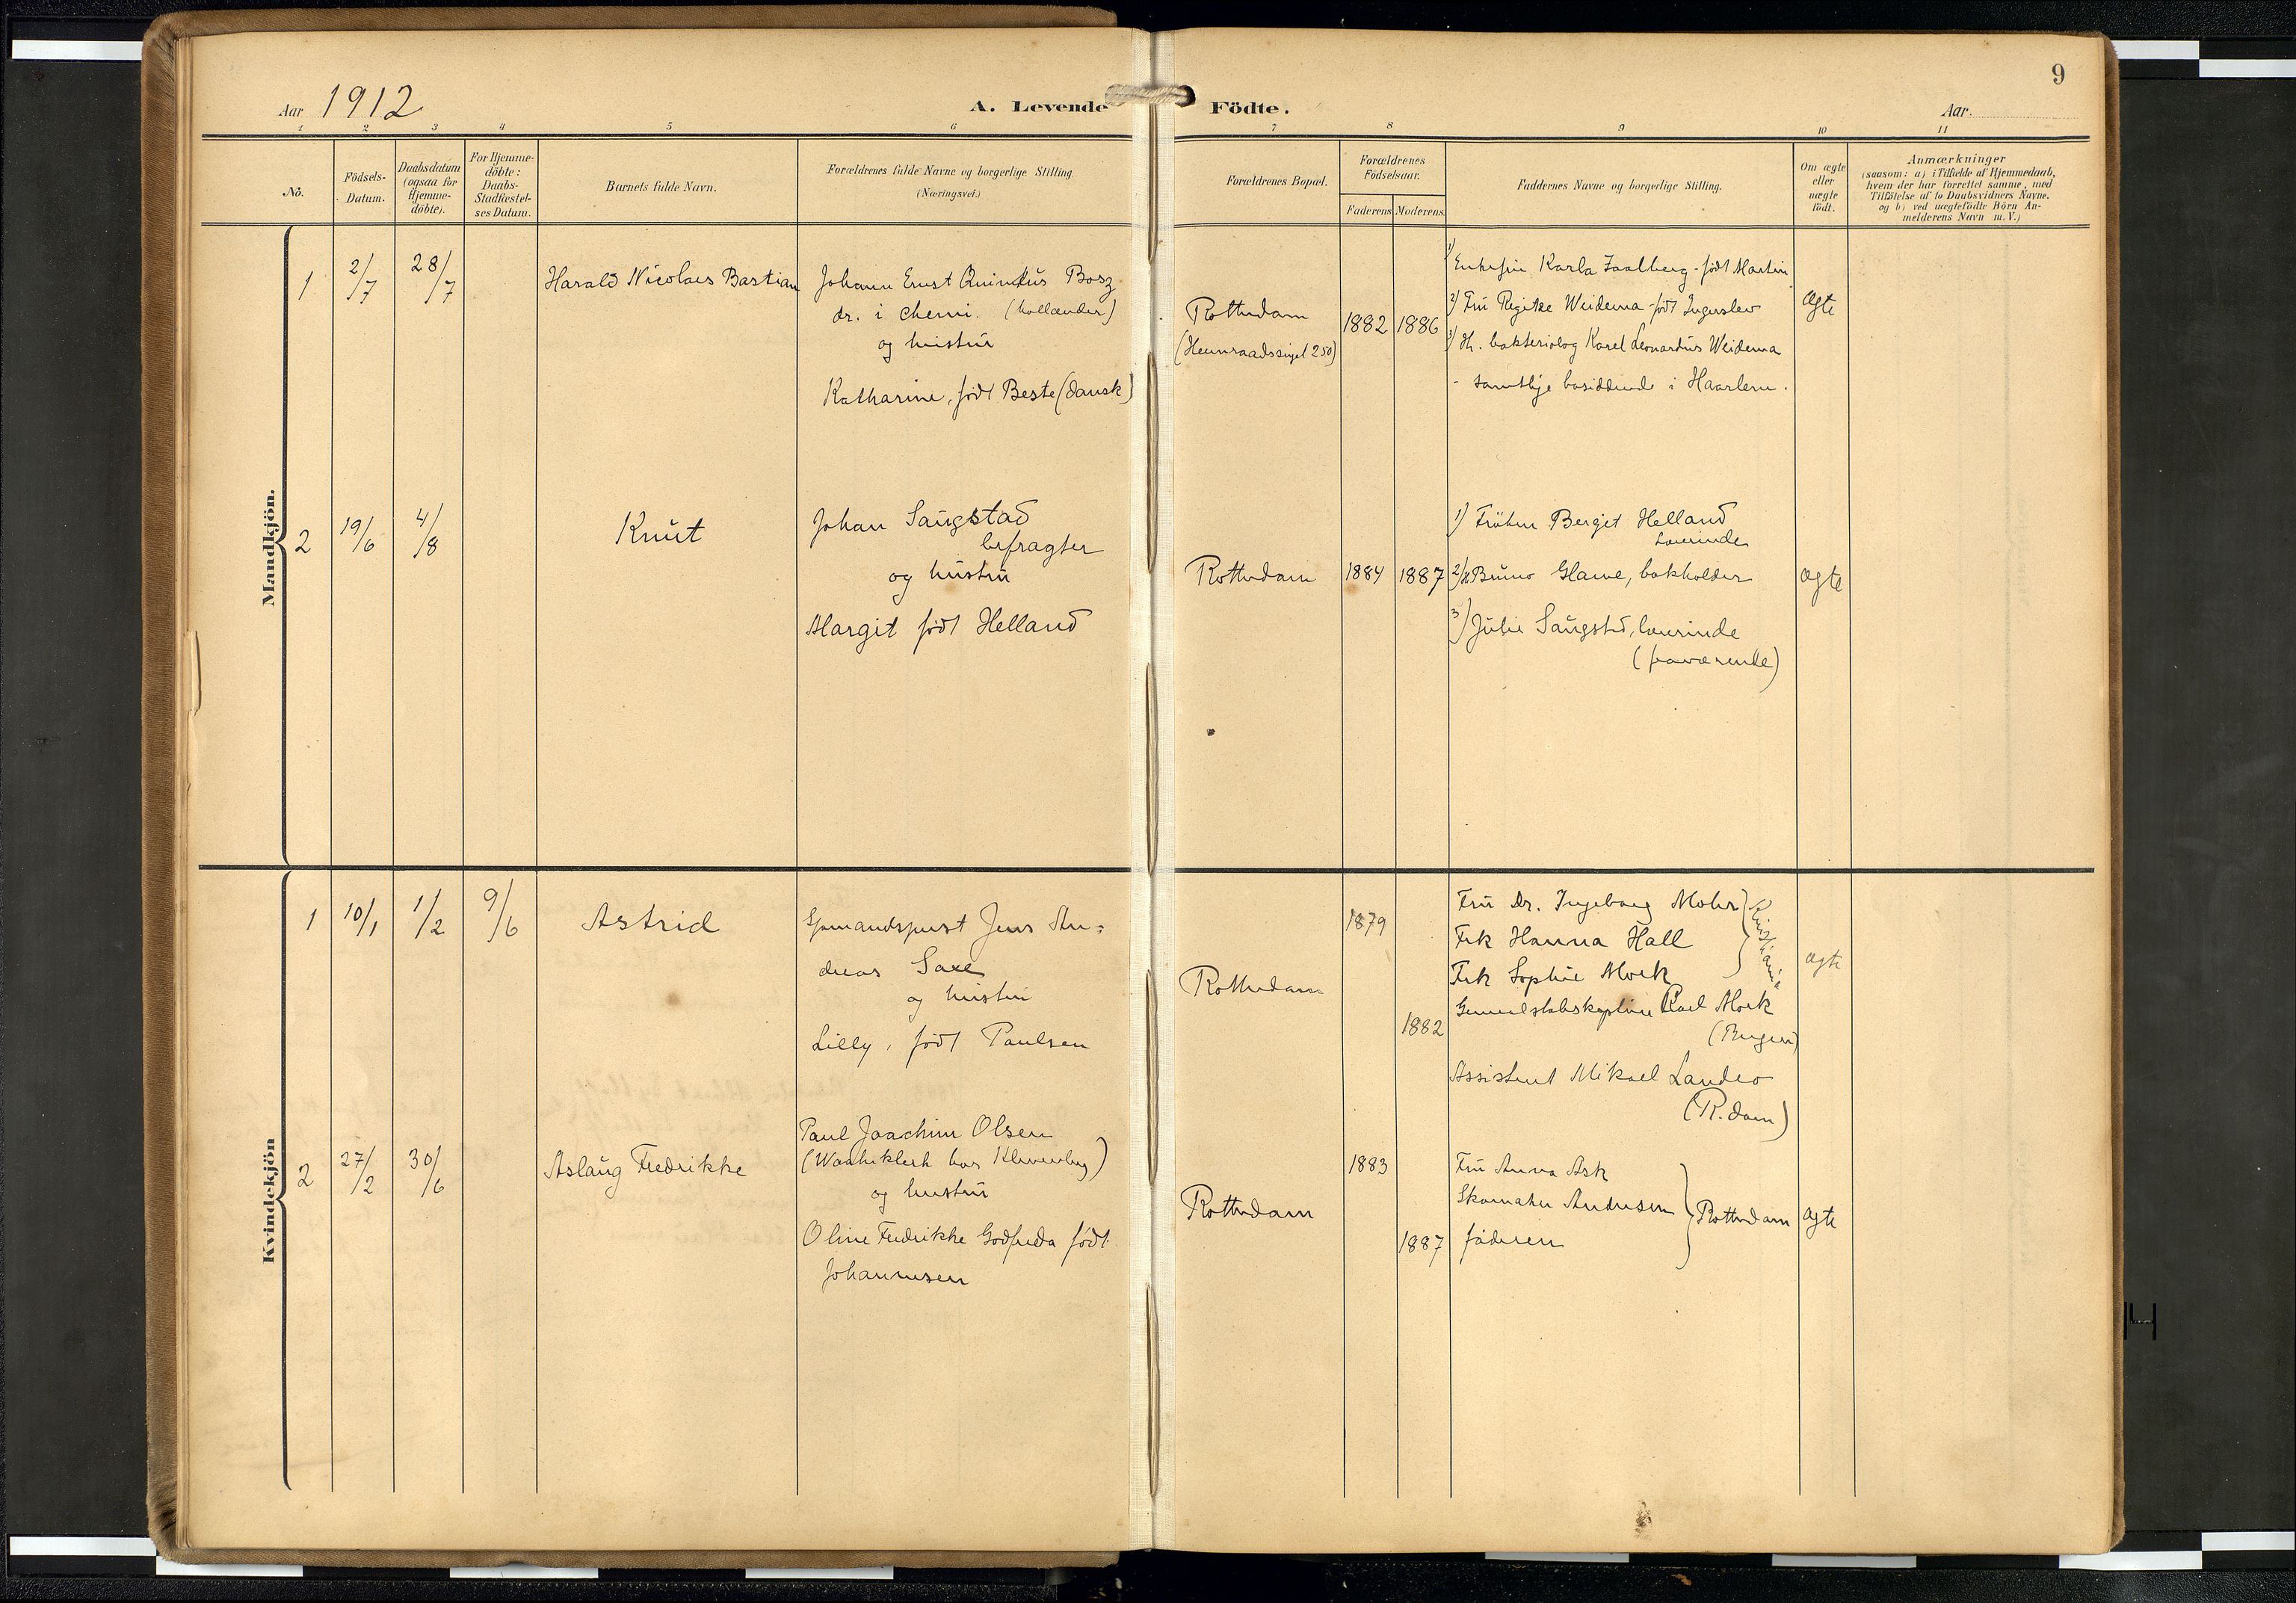 9
Aar 1912
A. Levende Födte.
Aar.
1 2 3 4 5 6 7 8 9 10 11
Nö.
Födsels-
Datum.
Daabsdatum
(ogsaa for
Hjemme-
döbte).
For Hjemme-
döbte:
Daabs-
Stadfæstel-
ses Datum.
Barnets fulde Navn.
Forældrenes fulde Navne og borgerlige Stilling
(Næringsvei.)
Forældrenes Bopæl.
Forældrenes
Födselsaar.
Faderens Moderens.
Faddernes Navne og borgerlige Stilling.
Om ægte
eller
uægte
födt.
Anmærkninger
(saasom: a) i Tilfælde af Hjemmedaab,
hvem der har forrettet samme, med
Tilföielse af to Daabsvidners Navne.
og b) ved uægtefödte Börn An-
melderens Navn m. V.)
Mandkjön.
1
2/7
28/7
Harald Nicolaes Bastian
Johann Ernst Quintus Bosz
dr. i chemi. (hollænder)
og hustru
Katharine, född Beste (dansk)
Rotterdam
(Heemraadssingel 250)
1882
1886
1) Enkefru Karla Zaalberg - född Martin
2) Fru Regitze Weidema - född Ingerslev
3) Hr. bakteriolog Karel Leonardus Weidema
- samtlige bosiddende i Haarlem.
Ægte
2
19/6
4/8
Knut
Johan Saugstad
befragter
og hustru
Margit född Helland
Rotterdam
1884
1887
1) Fröken Bergit Helland
Lærerinde
2) Hr Bruno Glawe, bokholder
3) Julie Saugstad, lærerinde
(fraværende)
ægte
Kvindekjön
1
10/1
1/2
9/6
Astrid
Sjømandsprest Jens An-
dreas Saxe
og hustru
Lilly, född Paulsen
Rotterdam
1879
1882
Fru Dr. Ingeborg Mohr
Frk Hanna Hall
Frk Sophie Mørk
Kristiania
Generalstabskaptein Karl Mørk
(Bergen)
Assistent Mikael Landro
(R.dam)
ægte
2
27/2
30/6
Aslaug Fredrikke
Paul Joachim Olsen
(Waterklerk hos Klaveneberg)
og hustru
Oline Fredrikke Godfreda född
Johannesen
Rotterdam
1883
1887
Fru Anna Ask
Skomaker Andresen
faderen
Rotterdam
ægte